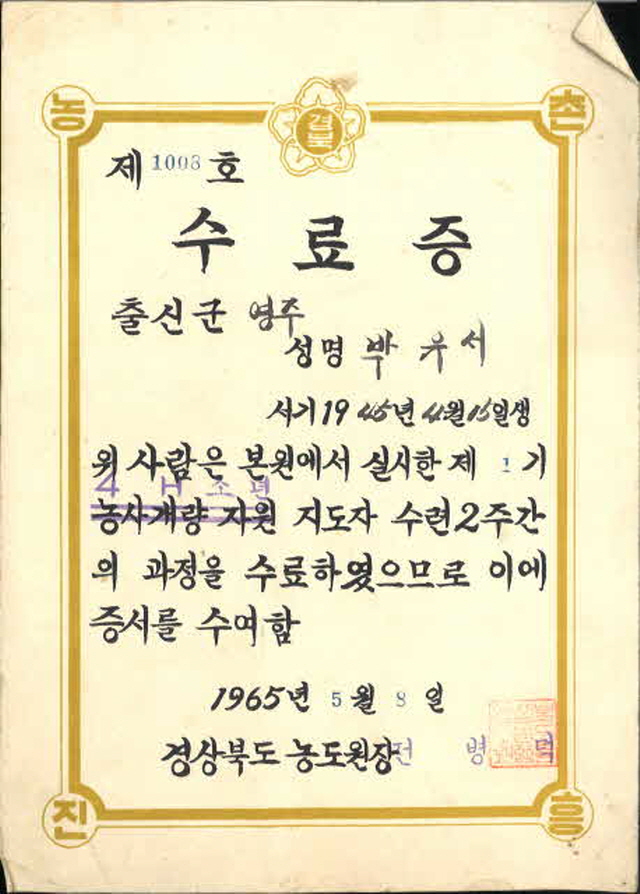 농 촌
경북
제 1003 호
수 료 증
출신군 영주
성명 박 우 서
서기 19 45년 4월 15일생
위 사람은 본원에서 실시한 제 1 기
4 H 소년
농사개량 자원 지도자 수련 2주간
의 과정을 수료하였으므로 이에
증서를 수여함
1965년 5월 8일
경상북도 농도원장 전 병 덕
진 흥